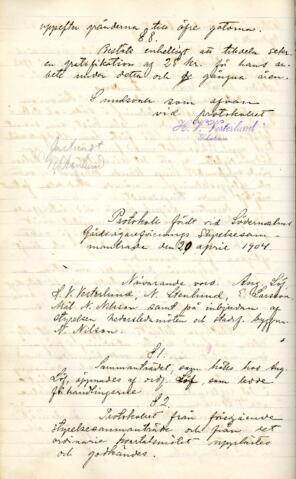 uppefter gränderna till öfre gatorna.
§ 8.
Beslöts enhelligt att tilldela sekr.
en gratifikation af 25 kr. för hans ar-
bete under detta och gångna åren.
Sundsvall som ofvan
vid protokollet
H. V. Vesterlund
Justeradt
Protokoll fördt vid Södermalms
Gårdsägareförenings styrelsesam-
manträde den 20 april 1904.
Närvarande voro Aug. Löf,
H. V. Vesterlund, N. Stenlund, Larsson
N. Nilson samt på inbjudan af
styrelsen hedersledamoten och
N. Nilson.
§ 1.
Sammanträdet, som hölls hos Aug.
Löf, öppnades af ordf. Löf, som ledde
förhandlingarne.
§ 2.
Protokollet från föregående
styrelsesammanträde och från det
ordinarie kvartalsmötet upplästes
och godkändes.